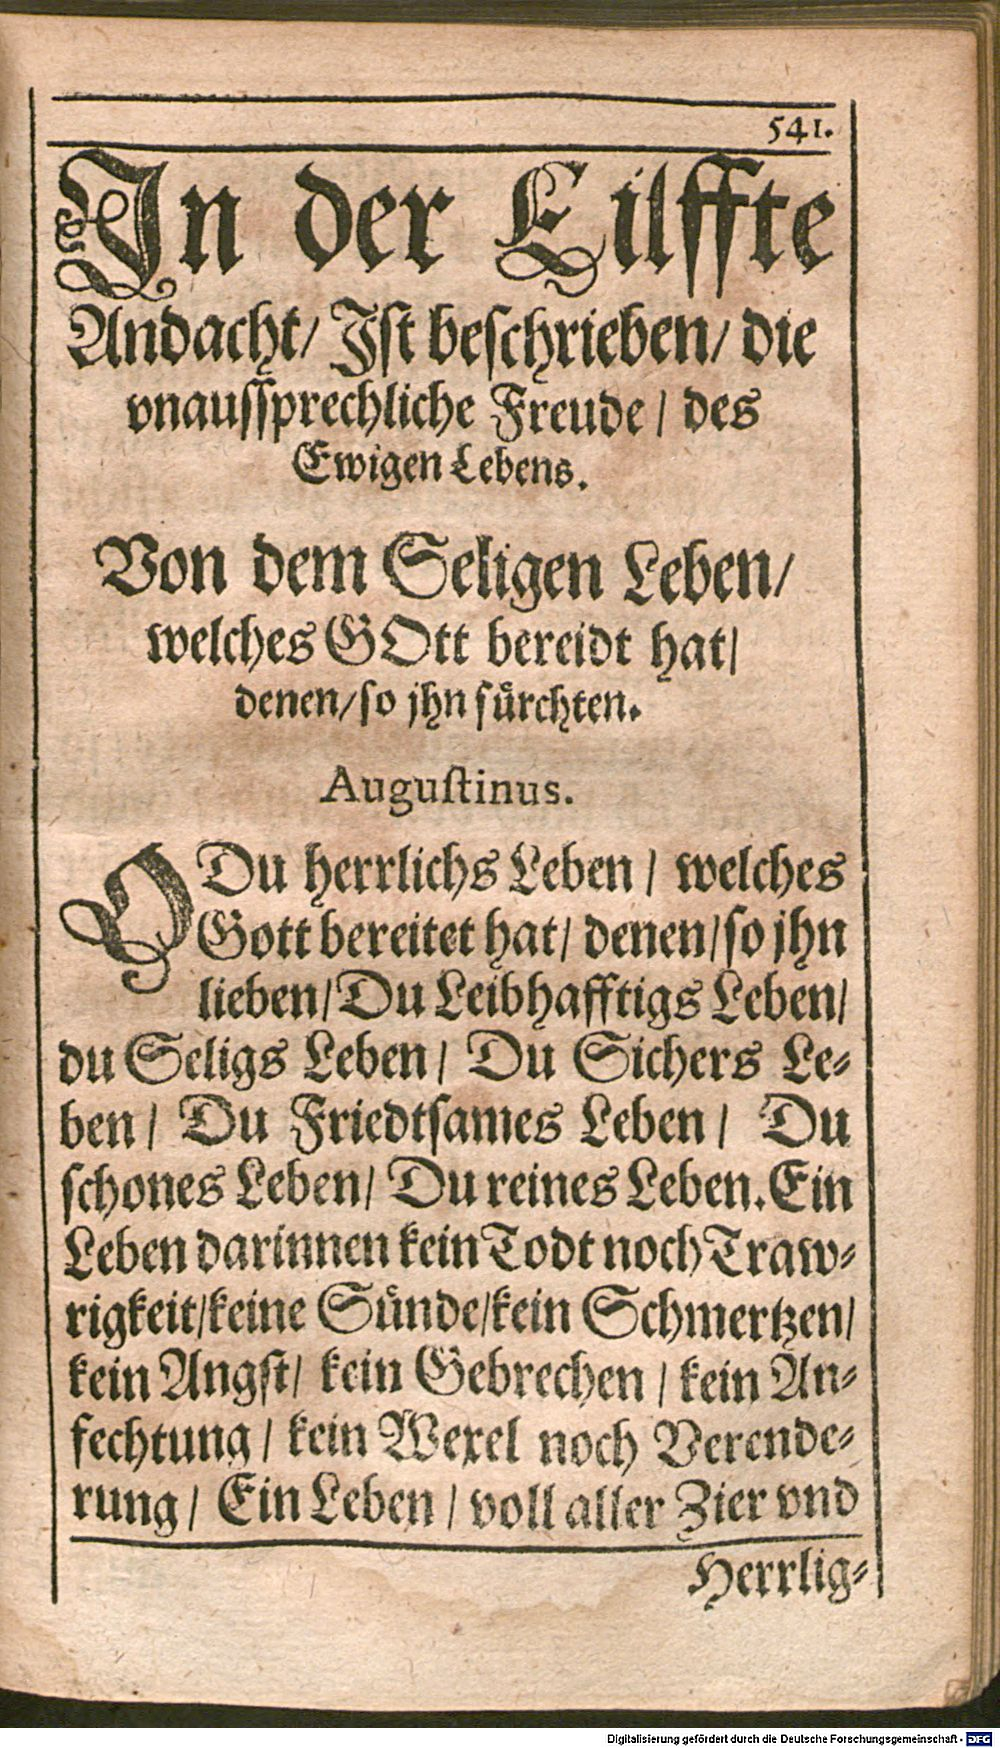 541.
In der Eilffte
Andacht/ Ist beschrieben/ die
vnaussprechliche Freude/ des
Ewigen Lebens.
Von dem Seligen Leben/
welches GOtt bereidt hat/
denen/so jhn fürchten.
Augustinus.
O Du herrlichs Leben/ welches
Gott bereitet hat/ denen/so jhn
lieben/Du Leibhafftigs Leben/
du Seligs Leben/ Du Sichers Le-
ben/ Du Friedtsames Leben/ Du
schones Leben/ Du reines Leben. Ein
Leben darinnen kein Todt noch Traw-
rigkeit/keine Sünde/kein Schmertzen/
kein Angst/ kein Gebrechen/ kein An-
fechtung/ kein Wexel noch Verende-
rung/ Ein Leben/ voll aller Zier vnd
Herrlig-
Digitalisierung gefördert durch die Deutsche Forschungsgemeinschaft - DFG